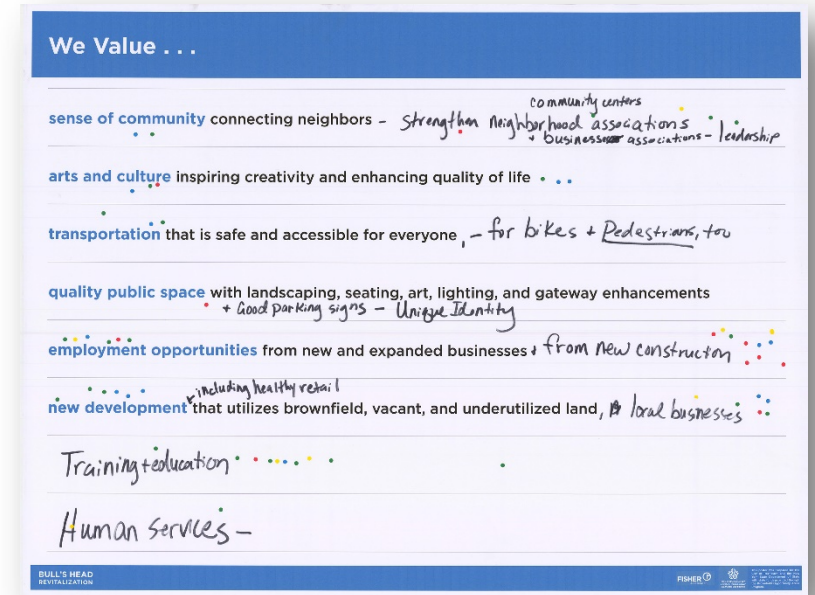 We Value . . .
community centers
sense of community connecting neighbors - Strengthen neighborhood associations
+ business associations - leadership
arts and culture inspiring creativity and enhancing quality of life
transportation that is safe and accessible for everyone, - for bikes + Pedestrians, too
quality public space with landscaping, seating, art, lighting, and gateway enhancements
+ Good parking signs - Unique Identity
employment opportunities from new and expanded businesses + from new constructon
including healthy retail
new development that utilizes brownfield, vacant, and underutilized land, local businesses
Training + education
Human Services -
BULL'S HEAD
REVITALIZATION
FISHER